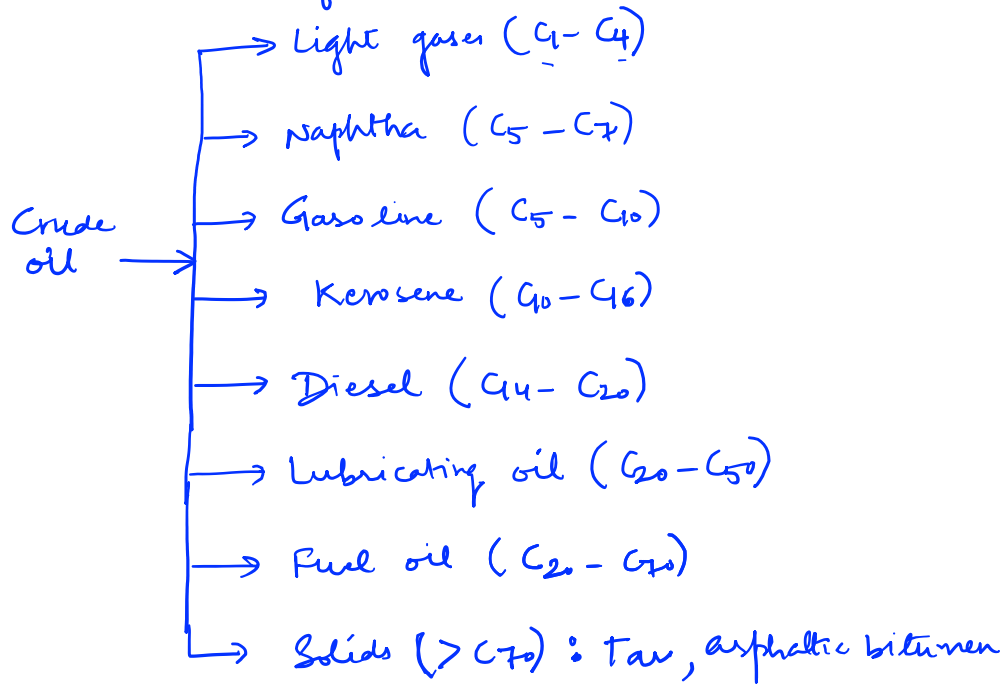 Light gases (C1 – C4)
Naphtha (C5 – C7)
Gasoline (C5 – C10)
Crude
oil
Kerosene (C10 – C16)
Diesel (C14 – C20)
Lubricating oil (C20 – C50)
Fuel oil (C20 – C70)
Solids (> C70) : Tar, asphaltic bitumen